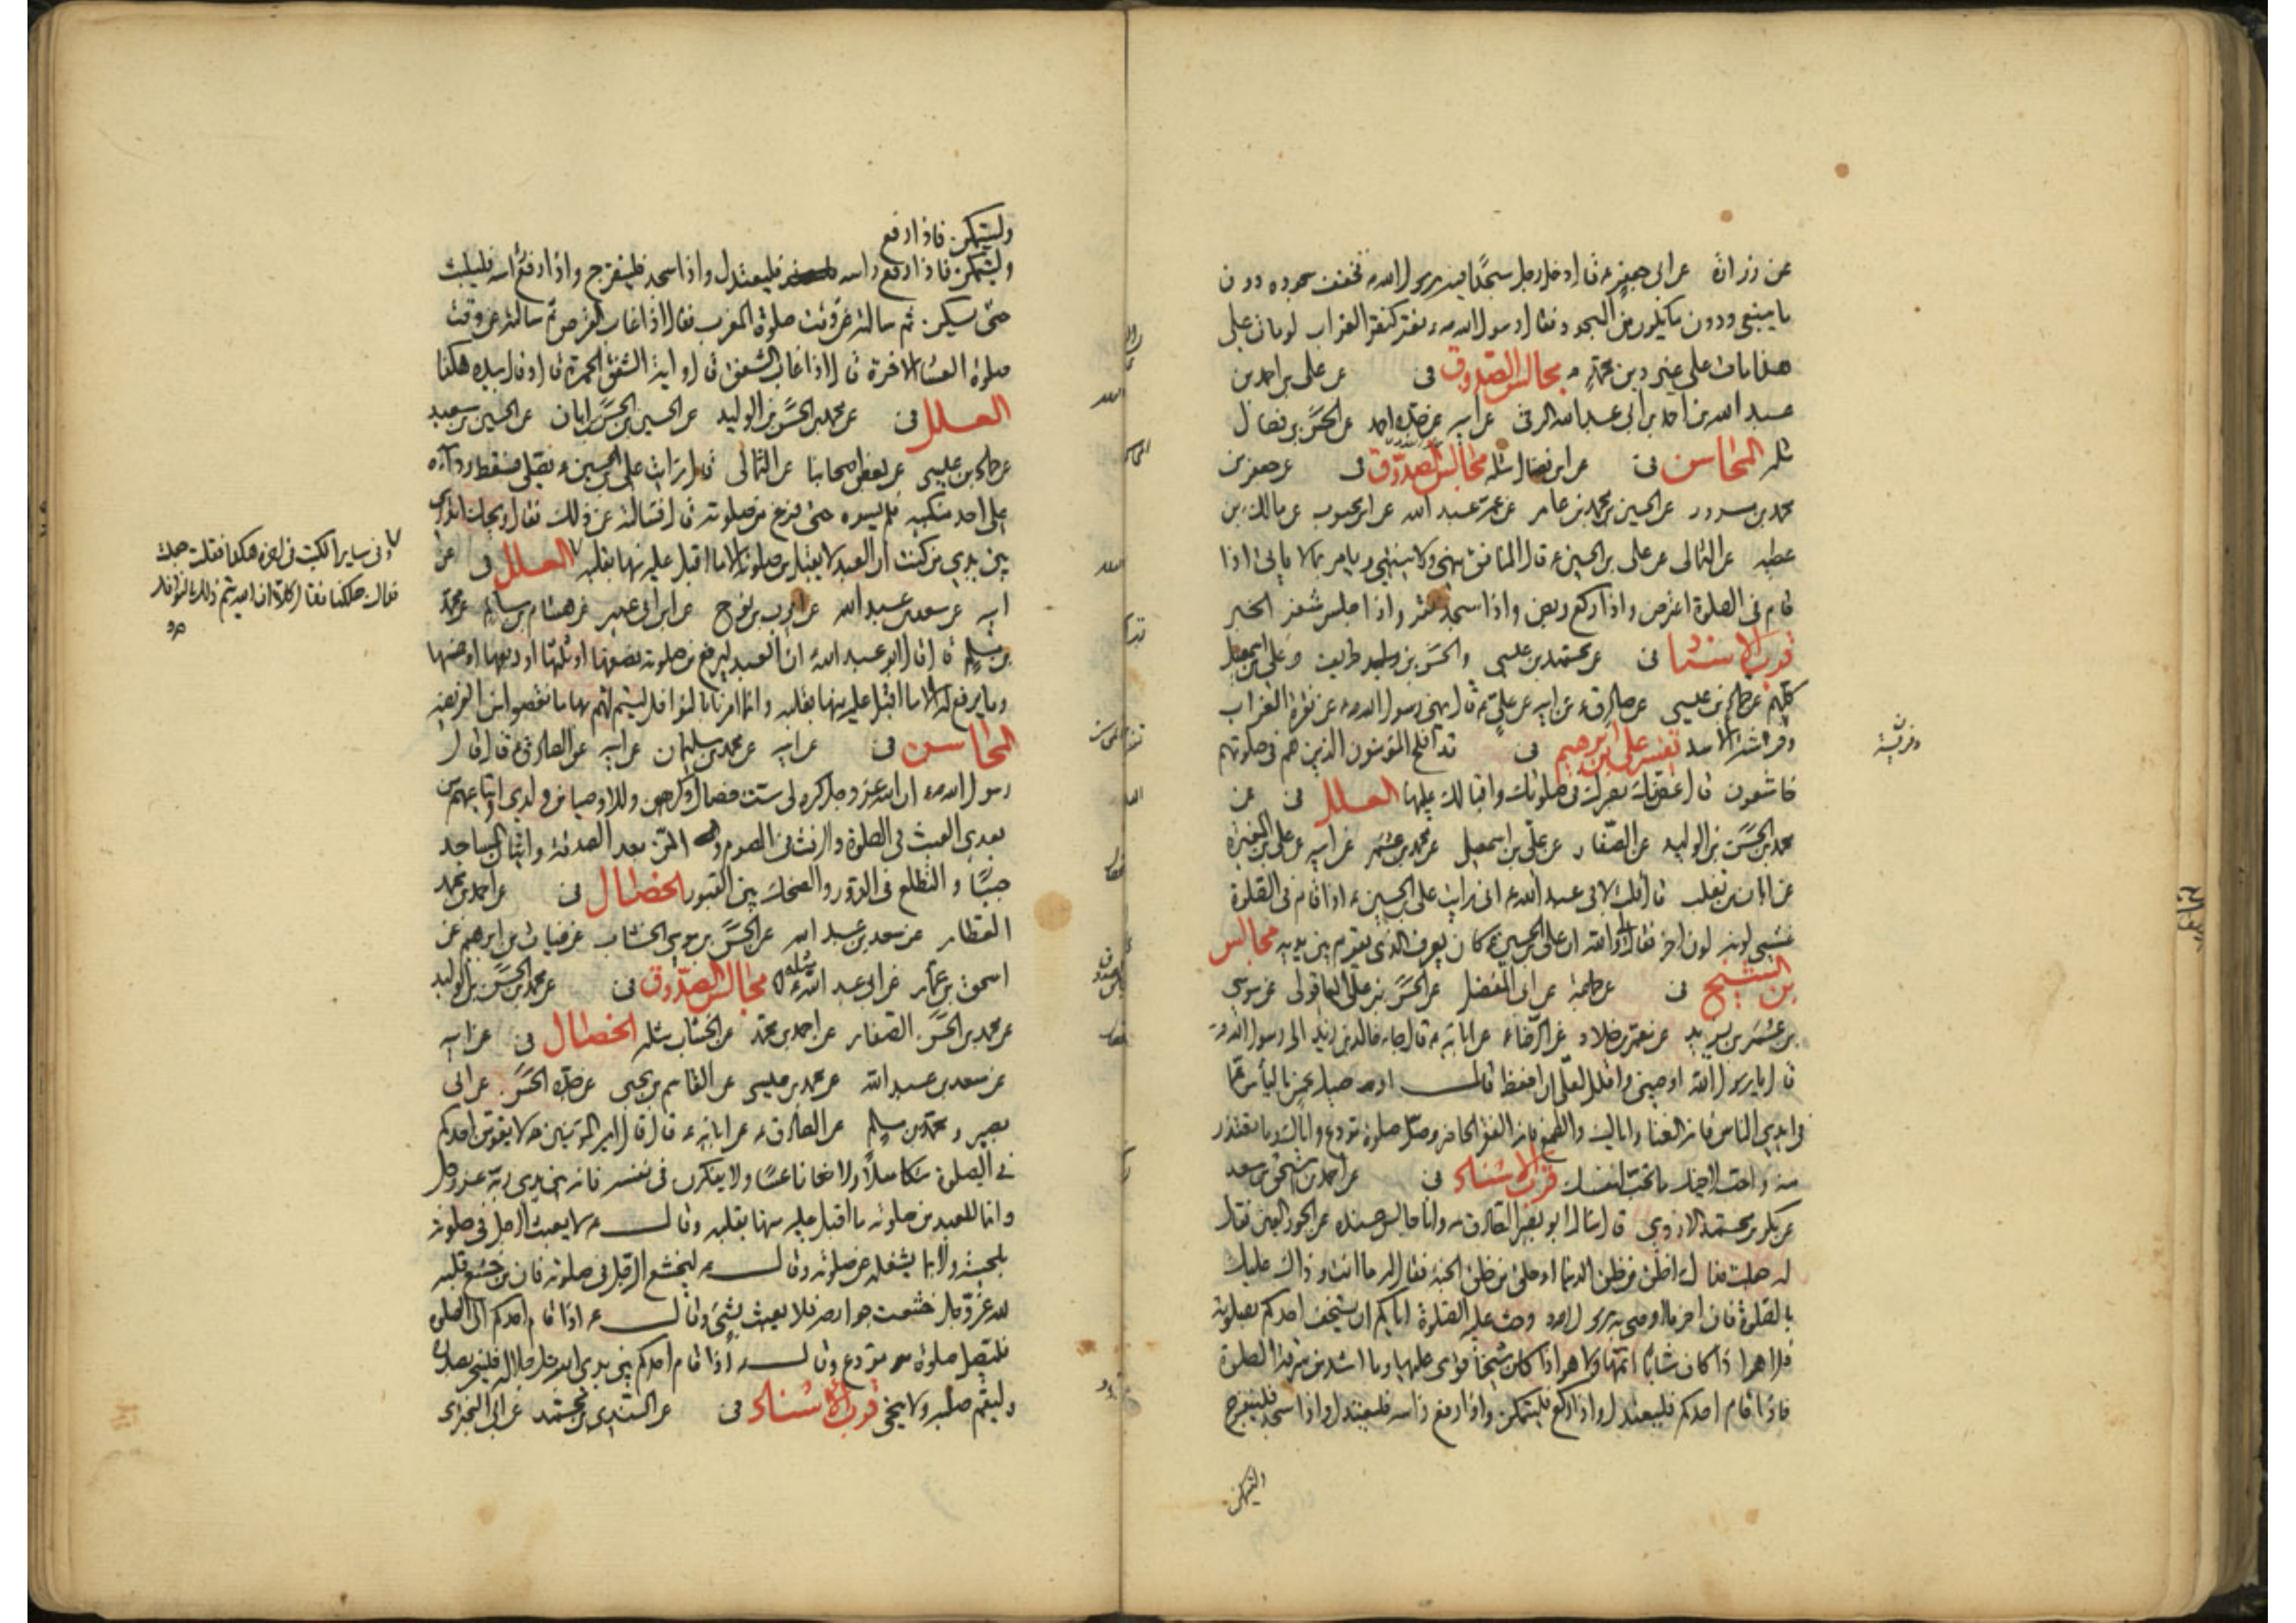 عن زرارة عن ابى جعفر ع قال دخل رجل مسجدًا فيه رسول الله ص فخفف سجوده دون
ما ينبغى ودون ما يكون من السجود فقال رسول الله ص نقر كنقر الغراب لو مات على
هذا مات على غير دين محمد ص مجالس الصدوق فى عن على بن احمد بن
عبد الله بن احمد بن ابى عبد الله البرقى عن ابيه عن جده احمد عن الحسن بن فضال
مثله المحاسن فى عن ابن فضال مثله مجالس الصدوق فى عن جعفر بن
محمد بن مسرور عن الحسين بن محمد بن عامر عن عمه عبد الله عن ابن محبوب عن مالك بن
عطيه عن الثمالى عن على بن الحسين ع قال المنافق ينهى ولا ينتهى ويامر بما لا ياتى اذا
قام فى الصلوة اعترض واذا ركع ربض واذا سجد نقر واذا جلس شغر الخبر
قرب الاسناد فى عن محمد بن عيسى والحسن بن ظريف وعلى بن اسمعيل
كلهم عن حماد بن عيسى عن الصادق ع عن ابيه عن على ع قال نهى رسول الله ص عن نقرة الغراب
وفرشة الاسد تفسير على بن ابرهيم فى قد افلح المؤمنون الذين هم فى صلوتهم
خاشعون قال غضك بصرك فى صلوتك واقبالك عليها العلل فى عن
محمد بن الحسن بن الوليد عن الصفار عن على بن اسمعيل عن محمد بن عمر عن ابيه عن على بن المغيرة
عن ابان بن تغلب قال قلت لابى عبد الله ع انى رايت على بن الحسين ع اذا قام فى الصلوة
غشى لونه لون اخر فقال لى والله ان على بن الحسين ع كان يعرف الذى يقوم بين يديه مجالس
بن الشيخ فى عن جماعة عن ابى المفضل عن الحسن بن على العاقولى عن موسى
بن عمر بن يزيد عن معمر بن خلاد عن الرضا ع عن ابائه ع قال جاء خالد بن زيد الى رسول الله ص
قال يا رسول الله اوصنى واقلل لعلى ان احفظ قال اوصيك بخمس باليأس مما
فى ايدى الناس فانه الغنا واياك والطمع فانه الفقر الحاضر وصل صلوة مودع واياك وما تعتذر
منه واحب لاخيك ما تحب لنفسك قرب الاسناد فى عن احمد بن اسحق بن سعد
عن بكر بن محمد الازدى قال سال ابو بصير الصادق ع وانا جالس عنده عن الحور العين فقال
له جعلت فداك اخلق من خلق الدنيا او خلق من خلق الجنة فقال له ما انت وذاك عليك
بالصلوة فان اخر ما اوصى به رسول الله ص وحث عليه الصلوة اياكم ان يستخف احدكم بصلوته
فلا هو اذا كان شابا اتمها ولا هو اذا كان شيخا قوى عليها وما اشد من سرقة الصلوة
فاذا قام احدكم فليعتدل واذا ركع فليتمكن واذا رفع راسه فليعتدل واذا سجد فلينفرج
وليتمكن
وليتمكن فاذا رفع
وليتمكن فاذا رفع راسه فليعتدل واذا سجد فلينفرج واذا رفع راسه فليلبث
حتى يسكن ثم سالته عن وقت صلوة المغرب فقال اذا غاب القرص ثم سالته عن وقت
صلوة العشاء الاخرة قال اذا غاب الشفق قال واية الشفق الحمرة قال وقال بيده هكذا
العلل فى عن محمد بن الحسن بن الوليد عن الحسين بن الحسن بن ابان عن الحسين بن سعيد
عن حماد بن عيسى عن بعض اصحابنا عن الثمالى قال رايت على بن الحسين ع يصلى فسقط رداءه
على احد منكبيه فلم يسوه حتى فرغ من صلوته قال فسالته عن ذلك فقال ويحك اتدرى
بين يدى من كنت ان العبد لا يقبل من صلوته الا ما اقبل عليه منها بقلبه العلل فى عن
ابيه عن سعد بن عبد الله عن ايوب بن نوح عن ابن ابى عمير عن هشام بن سالم عن محمد
بن مسلم قال قال ابو عبد الله ع ان العبد ليرفع له من صلوته نصفها او ثلثها او ربعها او خمسها
وما يرفع له الا ما اقبل عليه منها بقلبه وانما امرنا بالنوافل ليتم لهم بها ما نقصوا من الفريضة
المحاسن فى عن ابيه عن محمد بن سليمان عن ابيه عن الصادق ع قال قال
رسول الله ص ان الله عز وجل كره لى ست خصال وكرههن للاوصياء من ولدى واتباعهم من
بعدى العبث فى الصلوة والرفث فى الصوم والمن بعد الصدقة واتيان المساجد
جنبًا والتطلع فى الدور والضحك بين القبور الخصال فى عن احمد بن محمد
العطار عن سعد بن عبد الله عن الحسن بن موسى الخشاب عن غياث بن ابرهيم عن
اسحق بن عمار عن ابى عبد الله ع مثله مجالس الصدوق فى عن محمد بن الحسن بن الوليد
عن محمد بن الحسن الصفار عن احمد بن محمد عن الخشاب مثله الخصال فى عن ابيه
عن سعد بن عبد الله عن محمد بن عيسى عن القاسم بن يحيى عن جده الحسن عن ابى
بصير ومحمد بن مسلم عن الصادق ع عن ابائه ع قال قال امير المؤمنين ع لا يقومن احدكم
فى الصلوة متكاسلًا ولا ناعسًا ولا يفكرن فى نفسه فانه بين يدى ربه عز وجل
وانما للعبد من صلوته ما اقبل عليه منها بقلبه وقال ع لا يعبث الرجل فى صلوته
بلحيته ولا بما يشغله عن صلوته وقال ع ليخشع الرجل فى صلوته فان من خشع قلبه
لله عز وجل خشعت جوارحه فلا يعبث بشىء وقال ع اذا قام احدكم الى الصلوة
فليصل صلوة مودع وقال ع اذا قام احدكم بين يدى الله جل جلاله فلينحر بصدره
وليقم صلبه ولا ينحنى قرب الاسناد فى عن السندى بن محمد عن ابى البخترى
وفى ساير الكتب